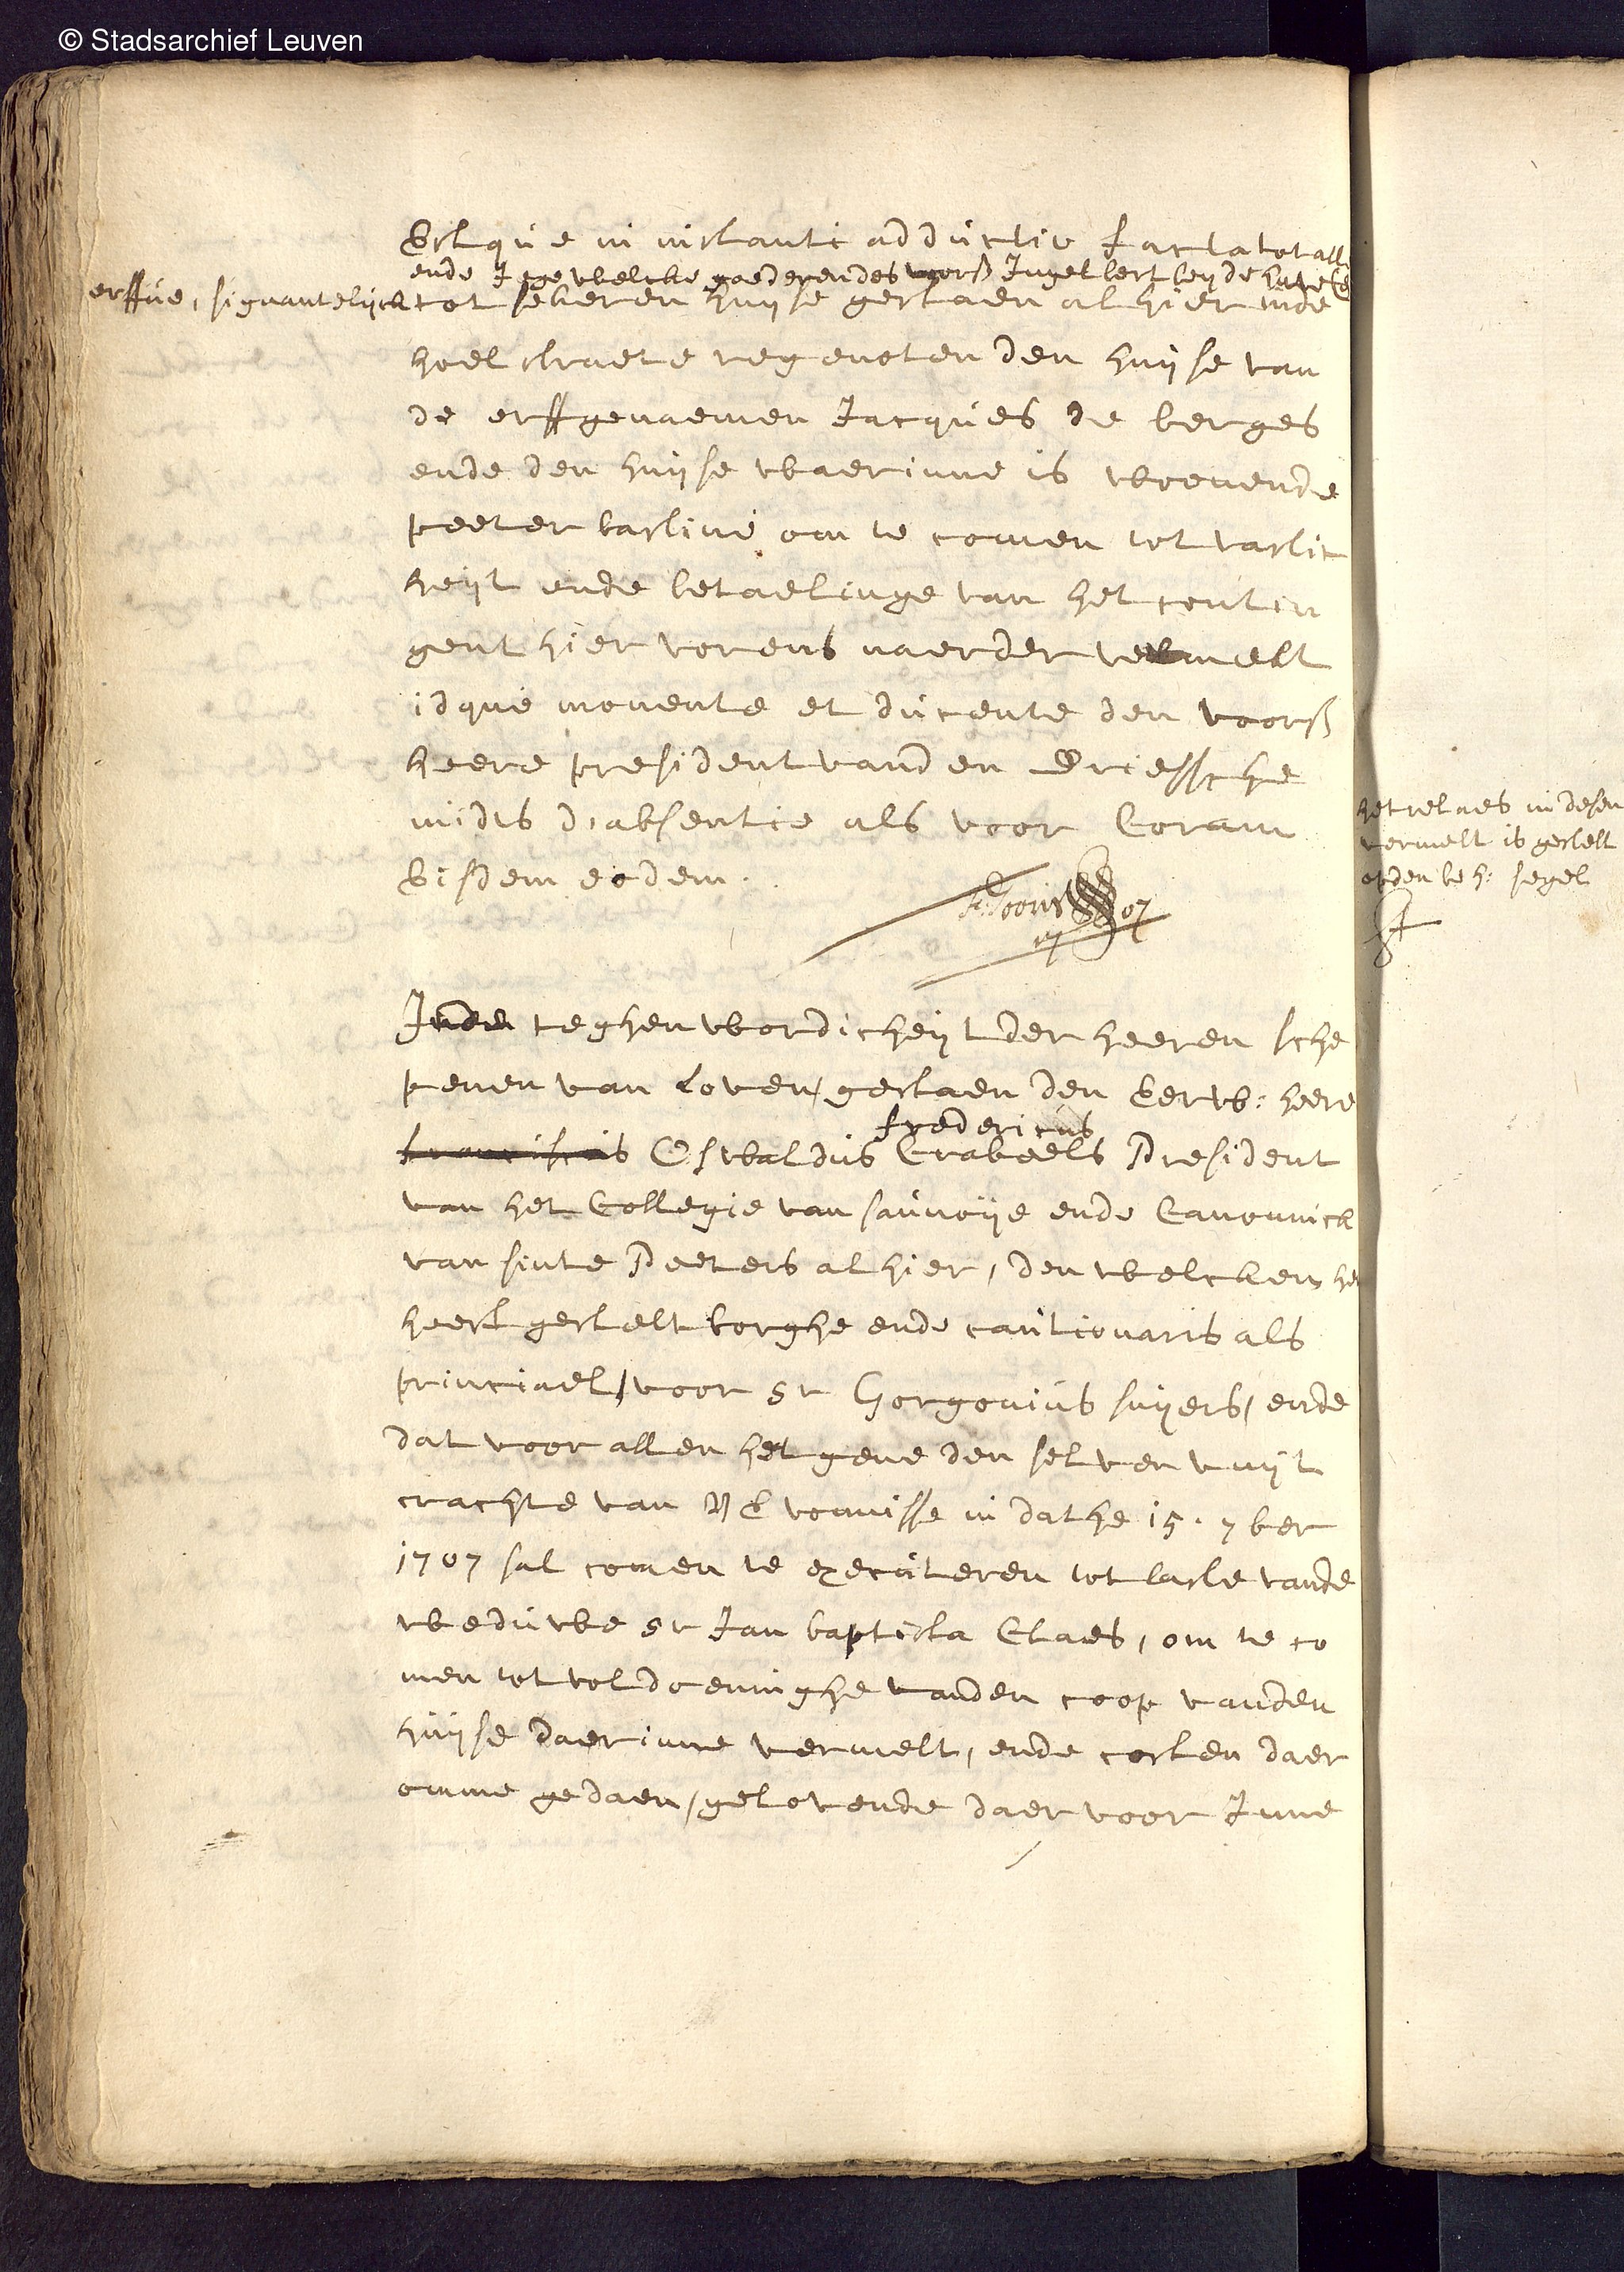 © Stadsarchief Leuven
Estque in instanti adductio facta tot alle
ende Iegewelcke goederen des voors Ingelbert
erffve, signantelijck tot sekeren huijse gestaen alhier inde
hoelstraete regenoten den huijse van
de erffgenaemen Jacques de berges
ende den huijse waerinne is woenende
peeter bastine om te comen tot vastic
heijt ende betaelinge van het contin
gent hier vorens naerder vermelt
idque movente et ducente den voors
heere president vanden Driessche
midts d'absentie als voor Coram
eisdem eodem.
07
Inde teghenwordicheijt der heeren sche
penen van loven, gestaen den Eerw: heere
fredericus
franciscus Oswaldus Crabeels President
van het Collegie van savoije ende Canonnick
van sinte Peeters alhier, den welcken hem
heeft gestelt borghe ende cautionaris als
princiael, voor sr Gorgonius suijers, ende
dat voor allen het gene den selven vuijt
crachte van vonnisse in dathe 15. 7ber
1707 sal comen te executeren tot laste vande
weduwe sr Jan baptista Claes, om te co
men tot voldoeninghe vanden coop vanden
huijse daerinne vermelt, ende costen daer
omme gedaen, gelovende daer voor Inne
het relaes in desen
vermelt is gestelt
op den be h: segel